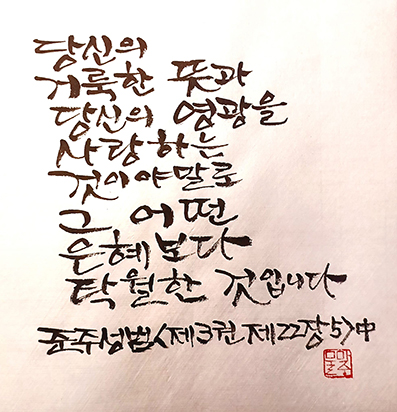 당신의
거룩한 뜻과
당신의 영광을
사랑하는
것이야말로
그 어떤
은혜보다
탁월한 것입니다
준주성범<제3권 제22장5>中